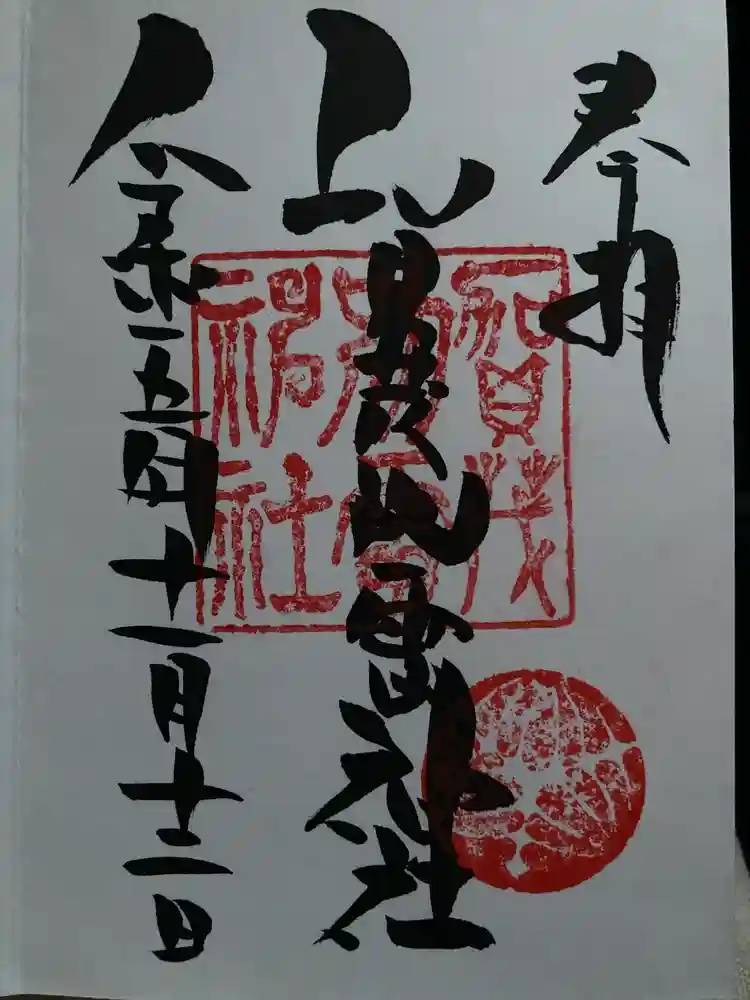 奉拝
上賀茂別雷神社
賀茂別雷神社
令和五年十一月十二日